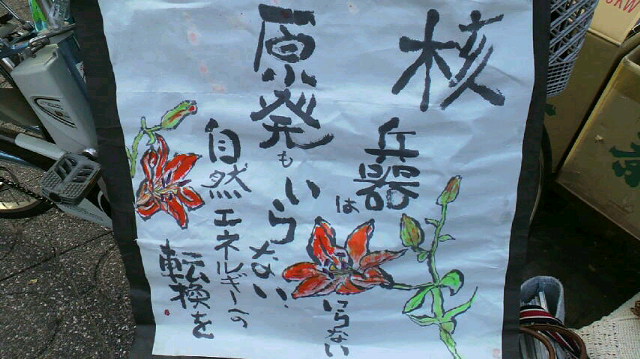 核
兵器は
いらない
原発も
いらない
自然エネルギーへの
転換を